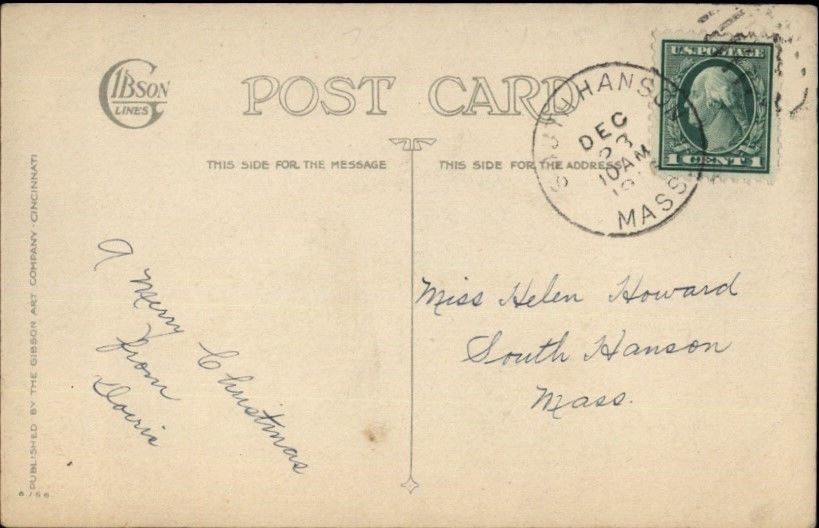 GIBSON
LINES
POST CARD
THIS SIDE FOR THE MESSAGE
THIS SIDE FOR THE ADDRESS
SOUTH HANSON
DEC
23
10 AM
MASS
U.S. POSTAGE
1 CENT 1
A Merry Christmas
from
Miss Helen Howard
South Hanson
Mass.
PUBLISHED BY THE GIBSON ART COMPANY · CINCINNATI